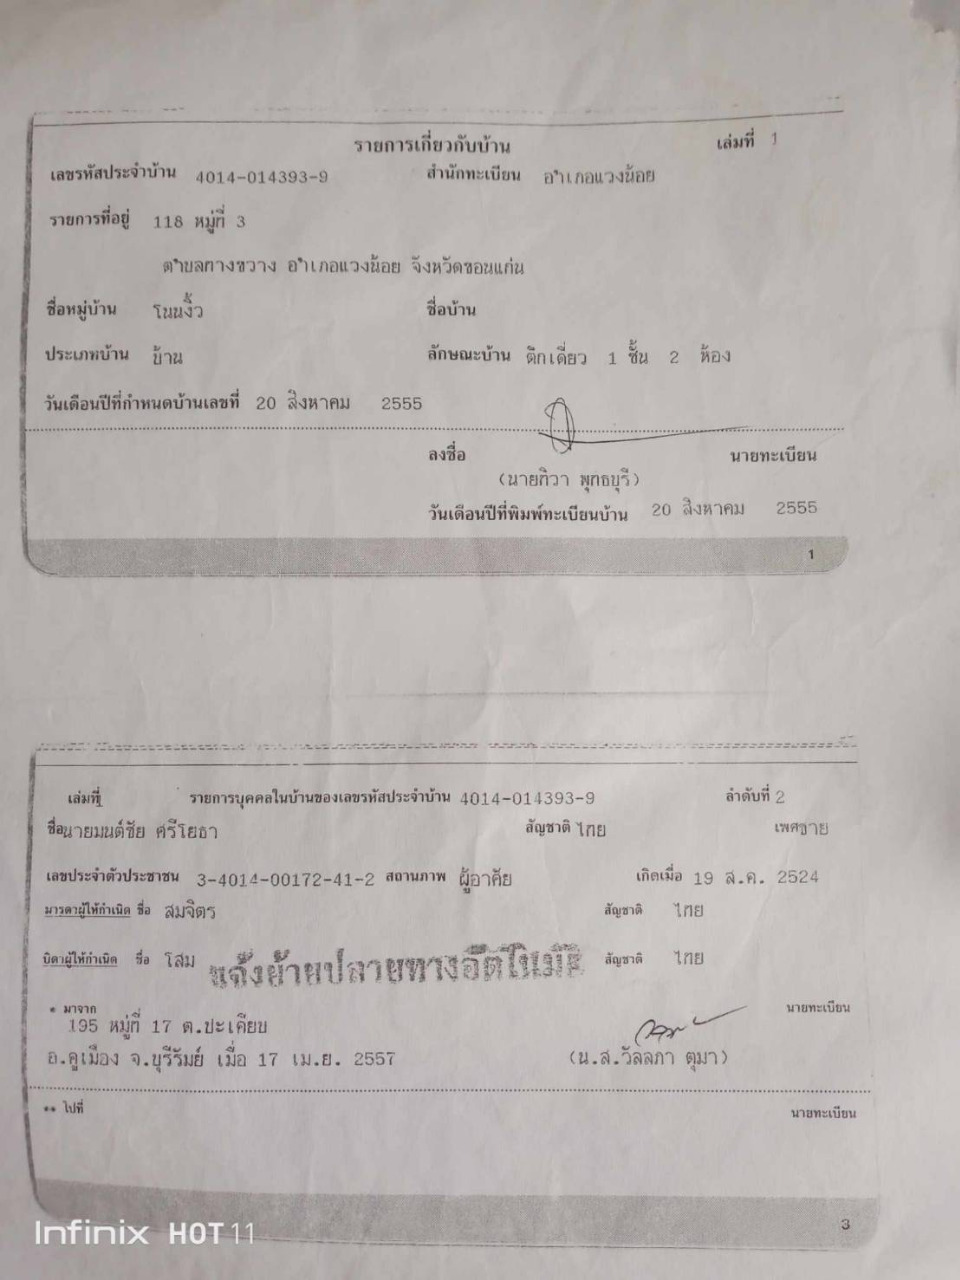 รายการเกี่ยวกับบ้าน เล่มที่ 1
เลขรหัสประจำบ้าน 4014-014393-9 สำนักทะเบียน อำเภอแวงน้อย
รายการที่อยู่ 118 หมู่ที่ 3
ตำบลทางขวาง อำเภอแวงน้อย จังหวัดขอนแก่น
ชื่อหมู่บ้าน โนนงิ้ว ชื่อบ้าน
ประเภทบ้าน บ้าน ลักษณะบ้าน ตึกเดี่ยว 1 ชั้น 2 ห้อง
วันเดือนปีที่กำหนดบ้านเลขที่ 20 สิงหาคม 2555
ลงชื่อ นายทะเบียน
(นายทิวา พุทธบุรี)
วันเดือนปีที่พิมพ์ทะเบียนบ้าน 20 สิงหาคม 2555
1
เล่มที่ 1 รายการบุคคลในบ้านของเลขรหัสประจำบ้าน 4014-014393-9 ลำดับที่ 2
ชื่อ นายมนต์ชัย ศรีโยธา สัญชาติ ไทย เพศ ชาย
เลขประจำตัวประชาชน 3-4014-00172-41-2 สถานภาพ ผู้อาศัย เกิดเมื่อ 19 ส.ค. 2524
มารดาผู้ให้กำเนิด ชื่อ สมจิตร สัญชาติ ไทย
บิดาผู้ให้กำเนิด ชื่อ โสม สัญชาติ ไทย
แจ้งย้ายปลายทางอัตโนมัติ
* มาจาก นายทะเบียน
195 หมู่ที่ 17 ต.ปะเคียบ
อ.คูเมือง จ.บุรีรัมย์ เมื่อ 17 เม.ย. 2557 (น.ส.วัลลภา ตุมา)
** ไปที่ นายทะเบียน
3
Infinix HOT 11